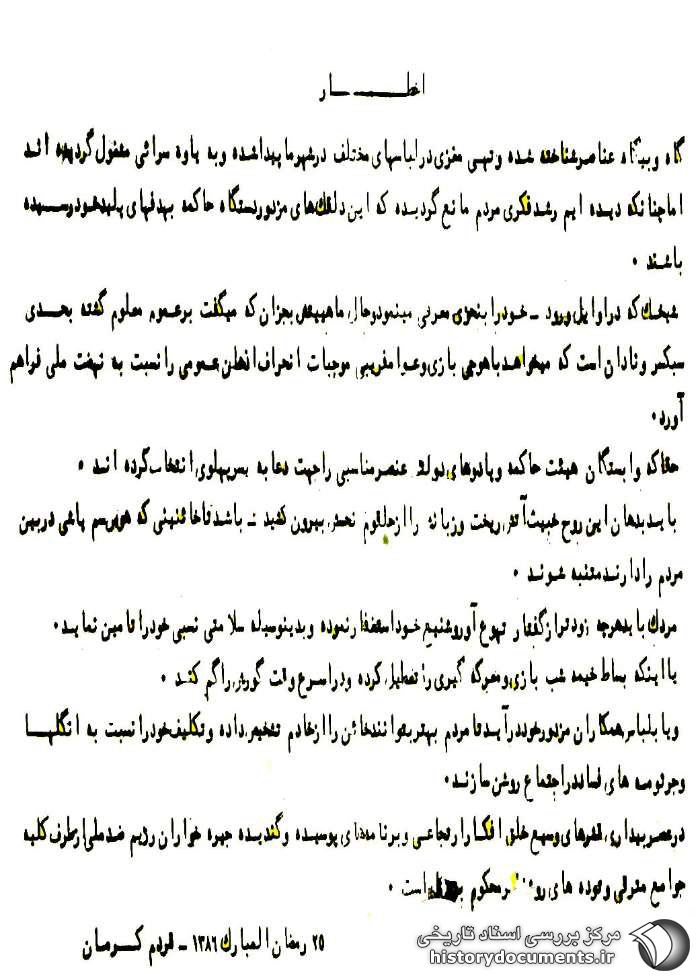 اخطــــــار
گاه و بیگاه عناصر شناخته شده و تهی مغزی در لباسهای مختلف در شهر ما پیدا شده و به یاوه سرائی مشغول گردیده اند
اما چنانکه دیده ایم رشد فکری مردم مانع گردیده که این دلقک های مزدور دستگاه حاکمه بهدفهای پلید خود رسیده
باشند ۰
شیخک که در اوایل ورود ـ خود را بنحوی معرفی مینمود و حال ماهیتش بجز آن که میگفت بر عموم معلوم گشته بحدی
سبکسر و نادان است که میخواهد با هوچی بازی و عوامفریبی موجبات انحراف اذهان عمومی را نسبت به نهضت ملی فراهم
آورد۰
حقا که وابستگان هیئت حاکمه و پادوهای دولت عنصر مناسبی را جهت دعا به پسر پهلوی انتخاب کرده اند ۰
باید بدهان این روح خبیث آتش ریخت و زبانه را از حلقوم نحسش بیرون کشید ـ باشد تا خائنینی که هنوز هم پائی در بین
مردم را دارند متنبه شوند ۰
مردک باید هر چه زودتر از گفتار تهوع آور و شنیع خود استغفار نموده و بدینوسیله سلامتی نسبی خود را تامین نماید۰
یا اینکه بساط خیمه شب بازی و معرکه گیری را تعطیل کرده و در اسرع وقت گورش را گم کند ۰
و یا بلباس همکاران مزدور خود در آید تا مردم بهتر بتوانند خائن را از خادم تشخیص داده و تکلیف خود را نسبت به انگلها
و جرثومه های فساد در اجتماع روشن سازند۰
در عصر بیداری قشرهای وسیع خلق افکار ارتجاعی و برنامه های پوسیده و گندیده جیره خواران رژیم ضد ملی از طرف کلیه
جوامع مترقی و توده های محکوم است ۰
۲۵ رمضان المبارک ۱۳۸۶ ـ مردم کرمان
مرکز بررسی اسناد تاریخی
historydocuments.ir